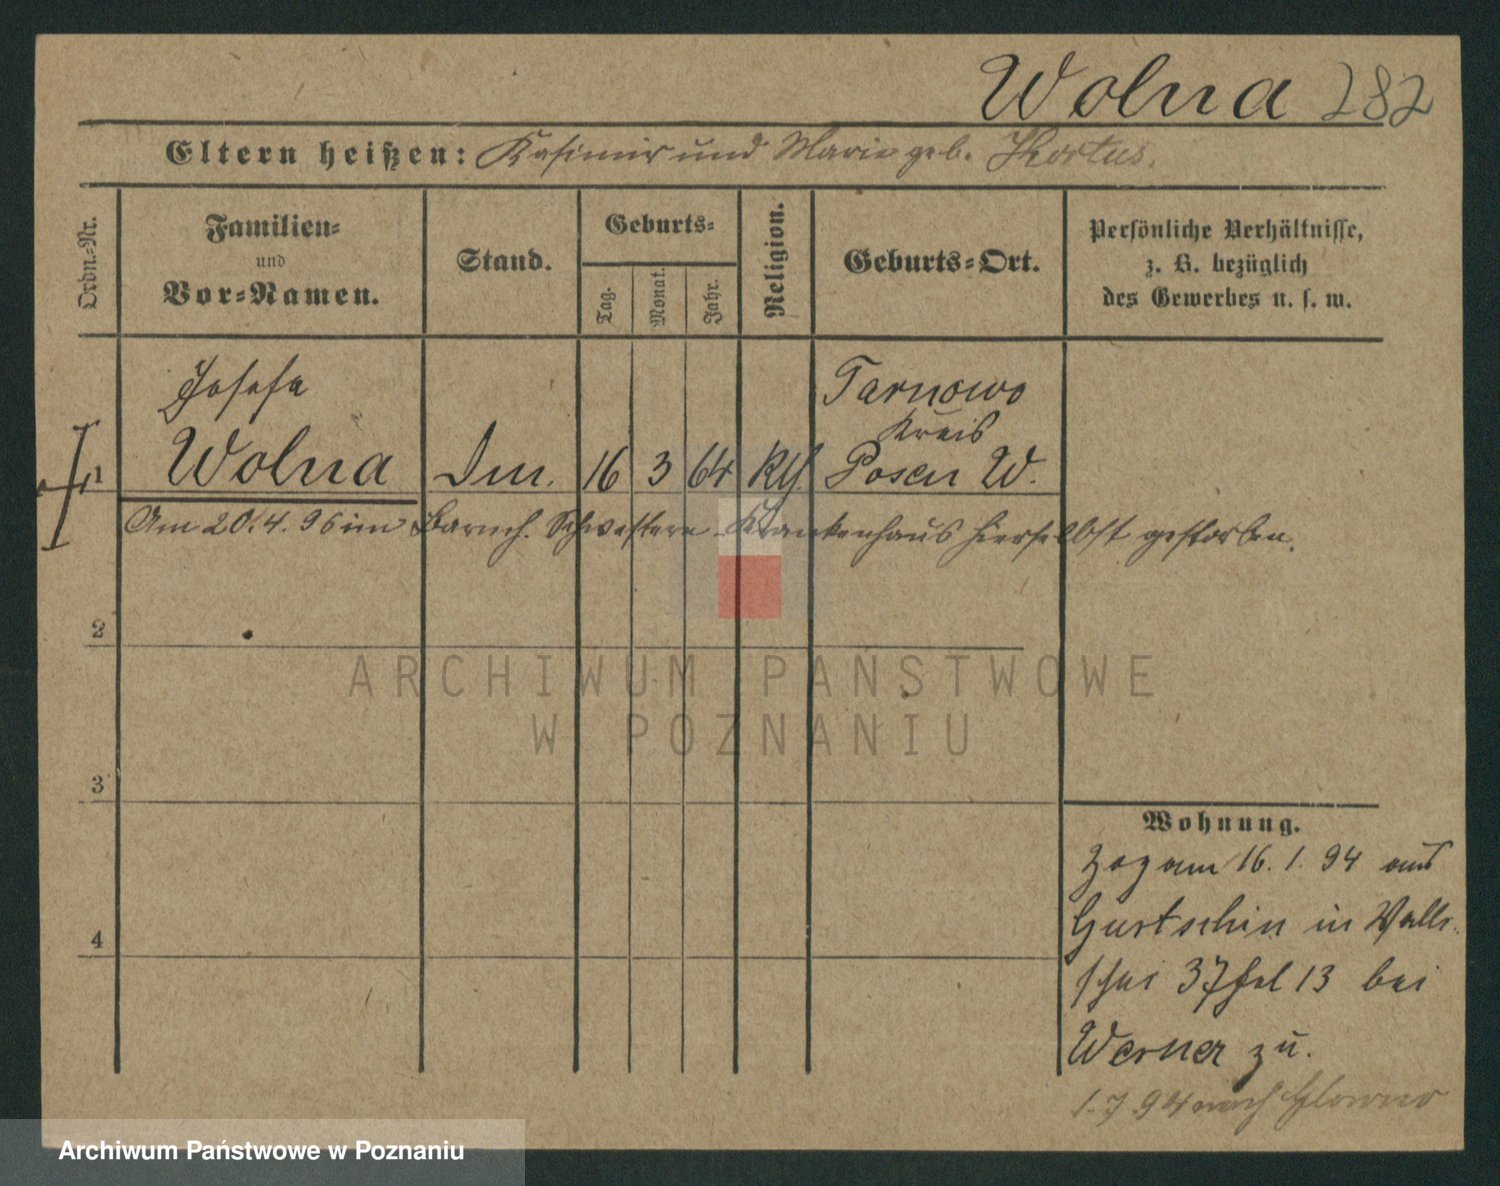 Wolna 282
Eltern heißen: Kasimir und Marie geb.
Ordn.-Nr.
Familien-
und
Vor-Namen.
Stand.
Geburts-
Tag.
Monat.
Jahr.
Religion.
Geburts-Ort.
Persönliche Verhältnisse,
z. B. bezüglich
des Gewerbes u. s. w.
Josefa
Tarnowo
Kreis
1 Wolna 16 3 64 Kth. Posen W.
Am 20.4.96 im Barmh. Schwestern-Krankenhaus hierselbst gestorben.
2
3
4
Wohnung.
Zog am 16.1.94 aus
Gurtschin in Walli-
schei 37 13 bei
Werner zu.
1.7.94 nach Glowno
ARCHIWUM PAŃSTWOWE
W POZNANIU
Archiwum Państwowe w Poznaniu